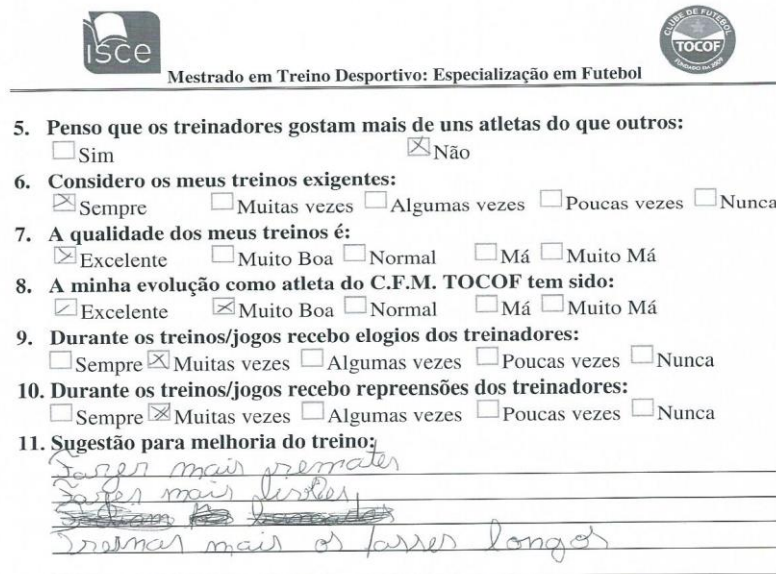 isce
CLUBE DE FUTEBOL
TOCOF
FUNDADO EM 2009
Mestrado em Treino Desportivo: Especialização em Futebol
5. Penso que os treinadores gostam mais de uns atletas do que outros:
Sim Não
6. Considero os meus treinos exigentes:
Sempre Muitas vezes Algumas vezes Poucas vezes Nunca
7. A qualidade dos meus treinos é:
Excelente Muito Boa Normal Má Muito Má
8. A minha evolução como atleta do C.F.M. TOCOF tem sido:
Excelente Muito Boa Normal Má Muito Má
9. Durante os treinos/jogos recebo elogios dos treinadores:
Sempre Muitas vezes Algumas vezes Poucas vezes Nunca
10. Durante os treinos/jogos recebo repreensões dos treinadores:
Sempre Muitas vezes Algumas vezes Poucas vezes Nunca
11. Sugestão para melhoria do treino:
Fazer mais remates
Fazer mais
Treinar mais os passes longos